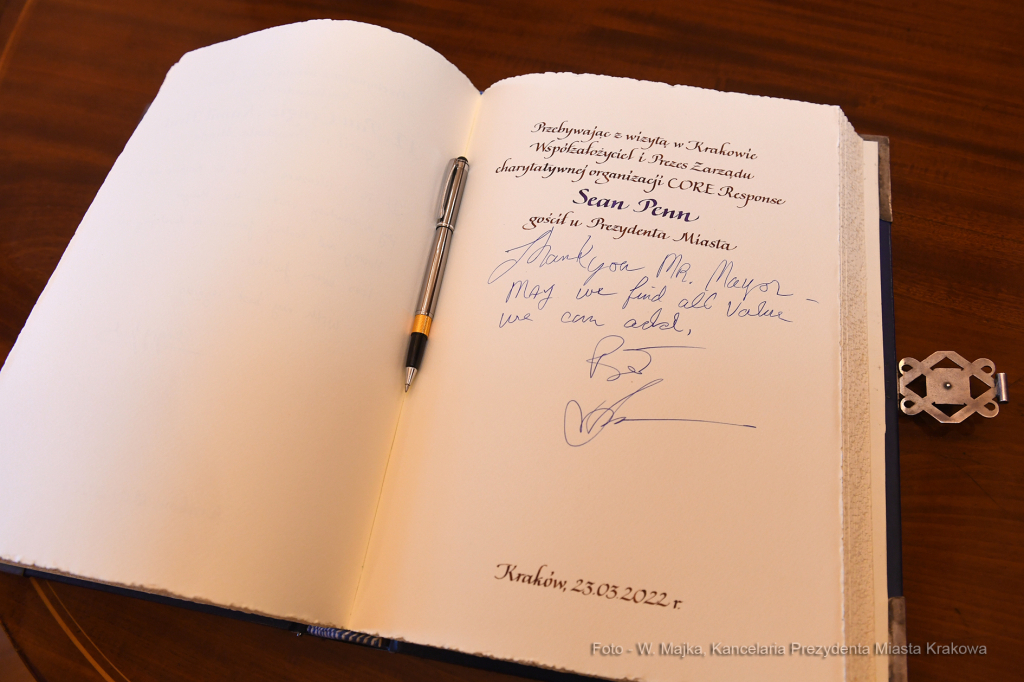 Przebywając z wizytą w Krakowie
Współzałożyciel i Prezes Zarządu
charytatywnej organizacji CORE Response
Sean Penn
gościł u Prezydenta Miasta
Thank you MR. Mayor -
MAY we find all value
we can add,
Kraków, 23.03.2022 r.
Foto - W. Majka, Kancelaria Prezydenta Miasta Krakowa